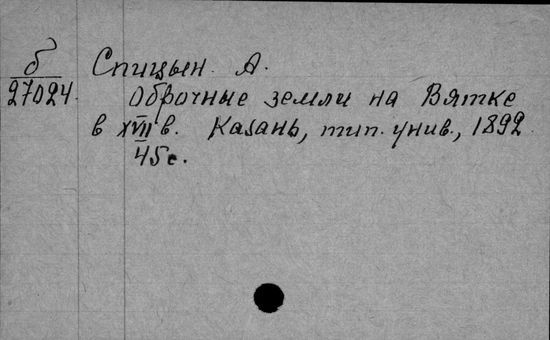 б Спицын. А.
27024. Оброчные земли на Вятке
в XVII в. Казань, тип. унив., 1892
45с.